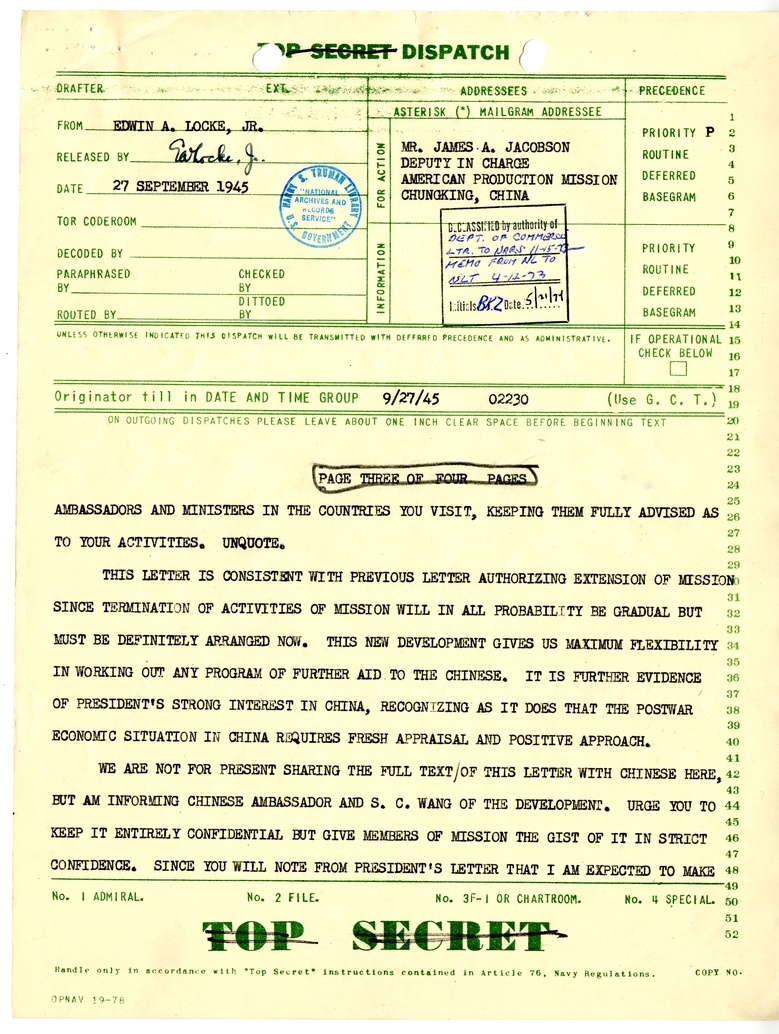 TOP SECRET DISPATCH
DRAFTER EXT. ADDRESSEES PRECEDENCE
ASTERISK (*) MAILGRAM ADDRESSEE
FROM EDWIN A. LOCKE, JR.
RELEASED BY EALocke, Jr.
DATE 27 SEPTEMBER 1945
TOR CODEROOM
DECODED BY
PARAPHRASED CHECKED
BY BY
DITTOED
ROUTED BY BY
HARRY S. TRUMAN LIBRARY
"NATIONAL
ARCHIVES AND
RECORDS
SERVICE"
U.S. GOVERNMENT
FOR ACTION
MR. JAMES A. JACOBSON
DEPUTY IN CHARGE
AMERICAN PRODUCTION MISSION
CHUNGKING, CHINA
INFORMATION
DECLASSIFIED by authority of
DEPT. OF COMMERCE
LTR. TO NARS 11-15-72
MEMO FROM NL TO
NLT 4-12-73
Initials BKZ Date 5/21/74
PRIORITY P
ROUTINE
DEFERRED
BASEGRAM
PRIORITY
ROUTINE
DEFERRED
BASEGRAM
UNLESS OTHERWISE INDICATED THIS DISPATCH WILL BE TRANSMITTED WITH DEFERRED PRECEDENCE AND AS ADMINISTRATIVE.
IF OPERATIONAL
CHECK BELOW
Originator fill in DATE AND TIME GROUP 9/27/45 02230 (Use G. C. T.)
ON OUTGOING DISPATCHES PLEASE LEAVE ABOUT ONE INCH CLEAR SPACE BEFORE BEGINNING TEXT
PAGE THREE OF FOUR PAGES
AMBASSADORS AND MINISTERS IN THE COUNTRIES YOU VISIT, KEEPING THEM FULLY ADVISED AS
TO YOUR ACTIVITIES. UNQUOTE.
THIS LETTER IS CONSISTENT WITH PREVIOUS LETTER AUTHORIZING EXTENSION OF MISSION
SINCE TERMINATION OF ACTIVITIES OF MISSION WILL IN ALL PROBABILITY BE GRADUAL BUT
MUST BE DEFINITELY ARRANGED NOW. THIS NEW DEVELOPMENT GIVES US MAXIMUM FLEXIBILITY
IN WORKING OUT ANY PROGRAM OF FURTHER AID TO THE CHINESE. IT IS FURTHER EVIDENCE
OF PRESIDENT'S STRONG INTEREST IN CHINA, RECOGNIZING AS IT DOES THAT THE POSTWAR
ECONOMIC SITUATION IN CHINA REQUIRES FRESH APPRAISAL AND POSITIVE APPROACH.
WE ARE NOT FOR PRESENT SHARING THE FULL TEXT/OF THIS LETTER WITH CHINESE HERE,
BUT AM INFORMING CHINESE AMBASSADOR AND S. C. WANG OF THE DEVELOPMENT. URGE YOU TO
KEEP IT ENTIRELY CONFIDENTIAL BUT GIVE MEMBERS OF MISSION THE GIST OF IT IN STRICT
CONFIDENCE. SINCE YOU WILL NOTE FROM PRESIDENT'S LETTER THAT I AM EXPECTED TO MAKE
1
2
3
4
5
6
7
8
9
10
11
12
13
14
15
16
17
18
19
20
21
22
23
24
25
26
27
28
29
30
31
32
33
34
35
36
37
38
39
40
41
42
43
44
45
46
47
48
49
50
51
52
No. 1 ADMIRAL. No. 2 FILE. No. 3F-1 OR CHARTROOM. No. 4 SPECIAL.
TOP SECRET
Handle only in accordance with "Top Secret" instructions contained in Article 76, Navy Regulations. COPY NO.
OPNAV 19-78